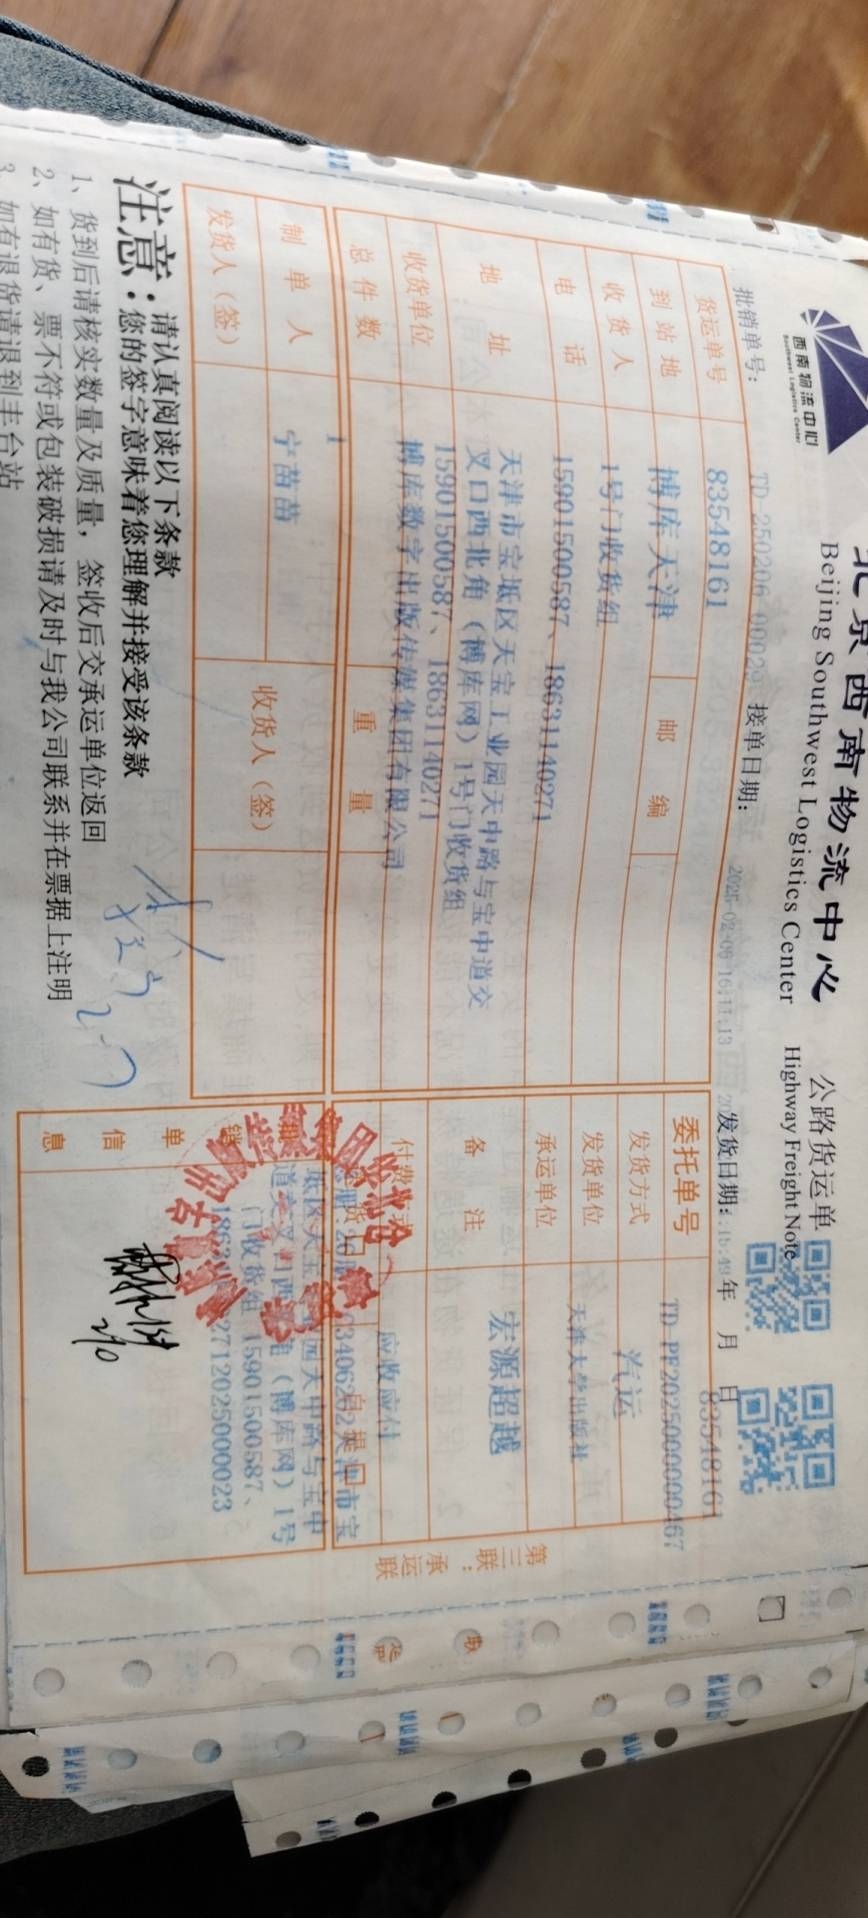 西南物流中心
Southwest Logistics Center
北京西南物流中心 公路货运单
Beijing Southwest Logistics Center Highway Freight Note
批销单号： TD-250206-00029 接单日期： 2025-02-06 16:11:13 发货日期： 年 月 日
83548161
货运单号 83548161 委托单号 TD-PF2025000000467
到站地 博库天津 邮编 发货方式 汽运
收货人 1号门收货组 发货单位 天津大学出版社
电话 15901500587、18631140271 承运单位
地址 天津市宝坻区天宝工业园天中路与宝中道交
叉口西北角（博库网）1号门收货组
15901500587、18631140271
备注 宏源超越
收货单位 博库数字出版传媒集团有限公司 付费方式 应收应付
总件数 1 重量
制单人 宁苗苗 收货人（签）
发货人（签）
单信息
天津市宝
坻区天宝 园天中路与宝中
道交叉口西 角（博库网）1号
门收货组 15901500587、
2712025000023
第三联：承运联
注意：请认真阅读以下条款
您的签字意味着您理解并接受该条款
1、货到后请核实数量及质量，签收后交承运单位返回
2、如有货、票不符或包装破损请及时与我公司联系并在票据上注明
3、如有退货请退到丰台站